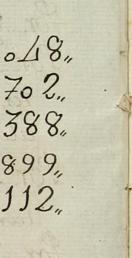 702„
388„
899„
112„